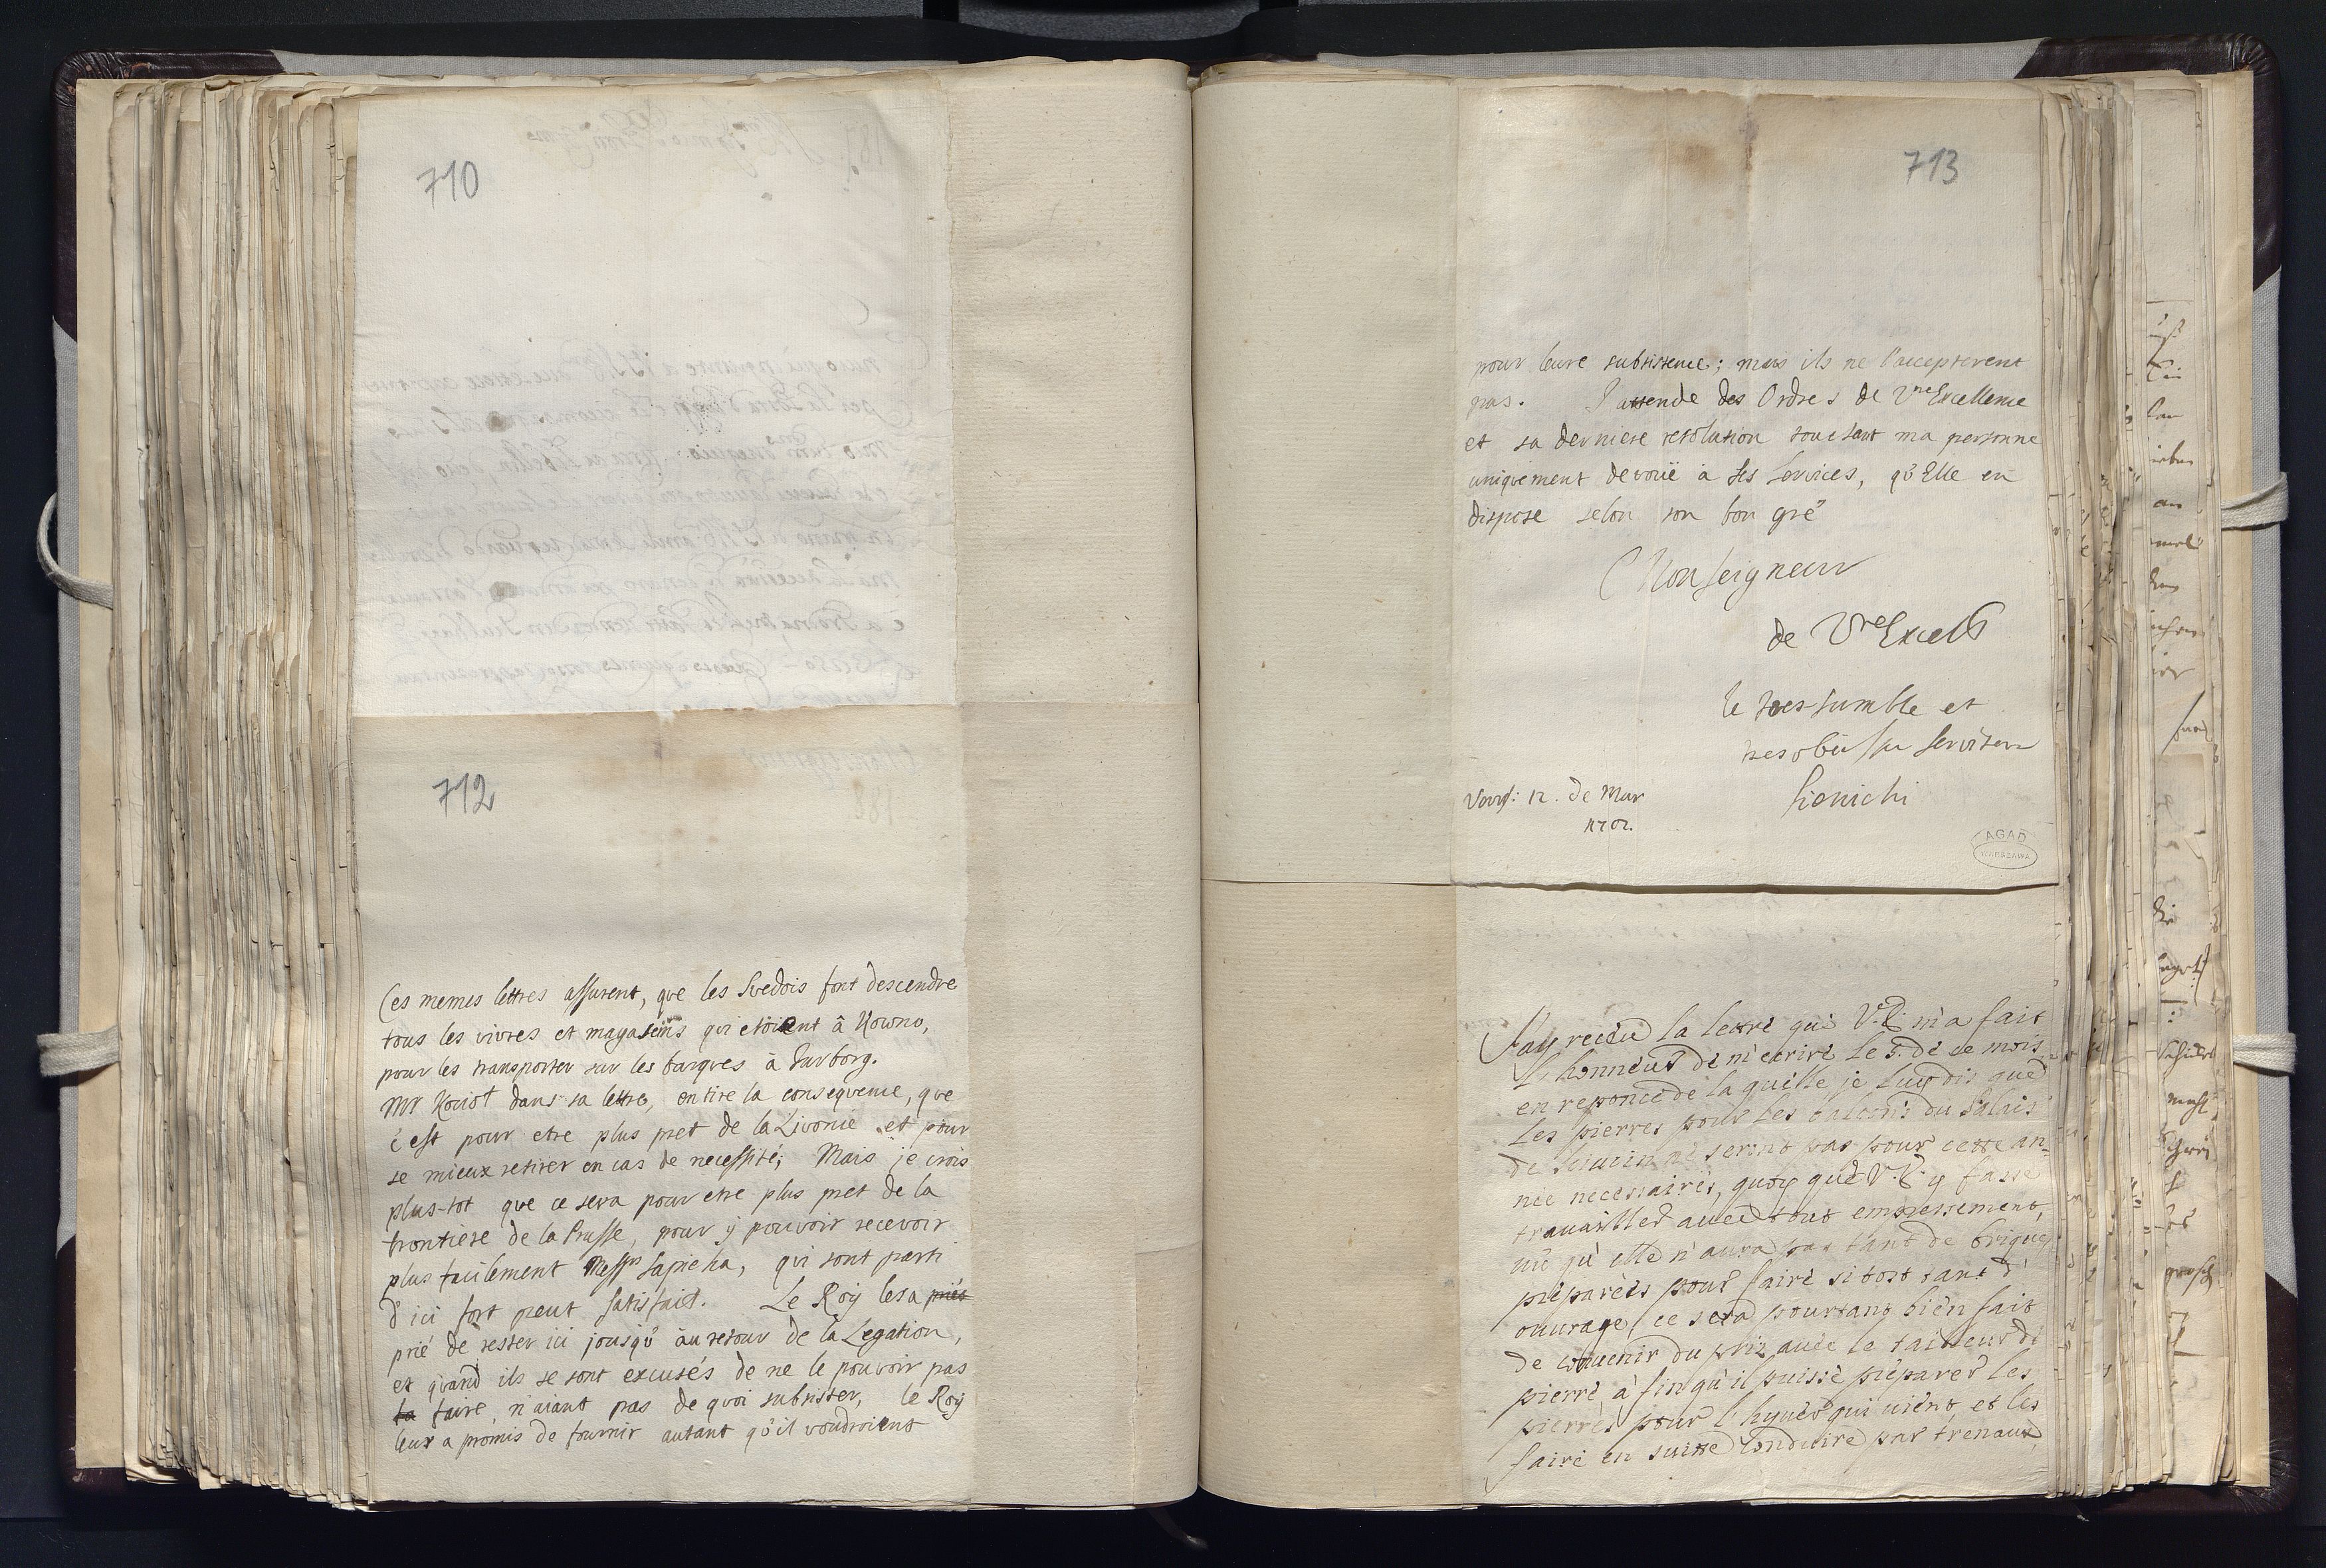 710
712
Ces memes lettres assurent, que les Svedois font descendre
tous les vivres et magaseins qui etoient â Kowno,
pour les transporter sur les barques à Jurborg.
Mr Kociot dans sa lettre, en tire la consequence, que
c'est pour etre plus pret de la Livonie et pour
se mieux retirer en cas de necessité; Mais je crois
plus-tot que ce sera pour etre plus pret de la
frontiere de la Prusse, pour ÿ pouvoir recevoir
plus facilement Messrs Sapieha, qvi sont parti
d'ici fort peut satisfait. Le Roÿ les a priés
prié de rester ici jousqu'ô au retour de la Legation,
et qvand ils se sont excusés de ne le pouvoir pas
la faire, n'aiant pas de qvoi subsister, le Roÿ
leur a promis de fournir autant qv'il voudroient
713
pour leure subsistence; mais ils ne l'accepterent
pas. J'attende des Ordres de Vre Excellence
et sa derniere resolution touchant ma personne
uniqvement devouë à ses services, qv'Elle en
dispose selon son bon gré
Monseigneur
de Vre Excell
le tres humble et
tres obeissa serviteur
Vars: 12. de Mar
1702.
AGAD
WARSZAWA
J'ay receu la lettre que V.E. m'a fait
l'honneur de m'ecrire le 5. de ce mois
en reponce de laquelle je luy dis que
les pierres pour les balcons du Palais
de seront pas pour cette an-
née necessaires, quoy que V.E. y fasse
travailler avec tout empressement,
vû qu'elle n'aura pas tant de briques
preparées pour faire si tost tant d'
ouvrage, ce sera pourtant bien fait
de convenir du prix avec le tailleur de
pierre à fin qu'il puisse preparer les
pierres pour l'hyver qui vient et les
faire en suitte conduire par trenaux,